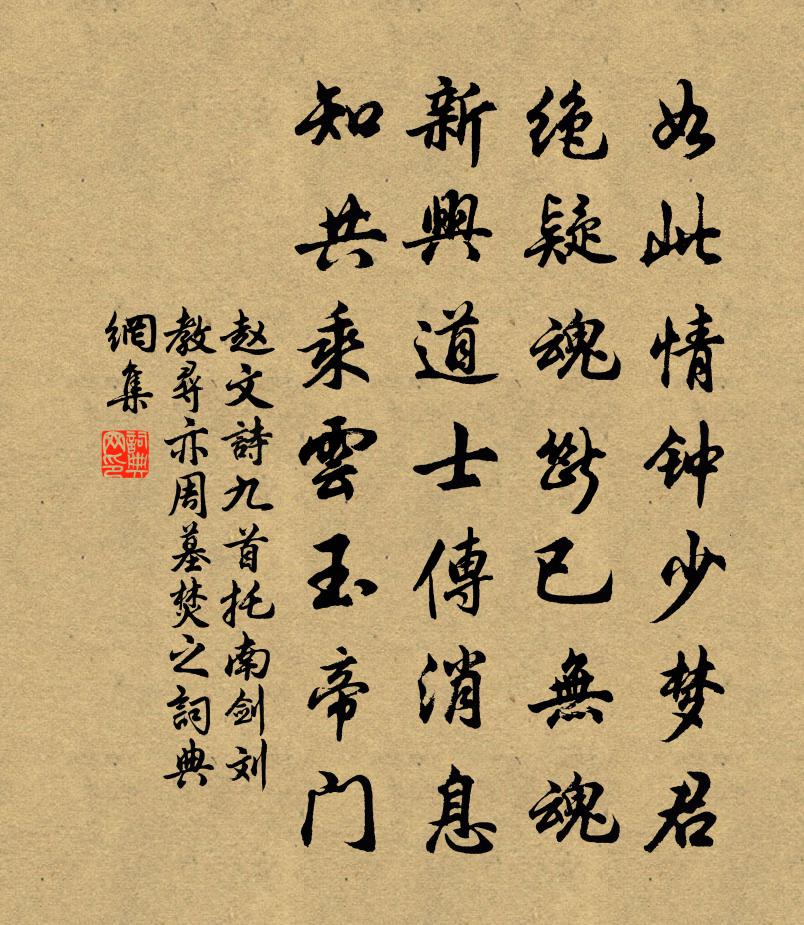 如此情钟少梦君
绝疑魂断已無魂
新興道士傳消息
知共乘雲玉帝门
赵文詩九首托南剑刘
教尋亦周墓焚之詞典
網集
詞典
网印